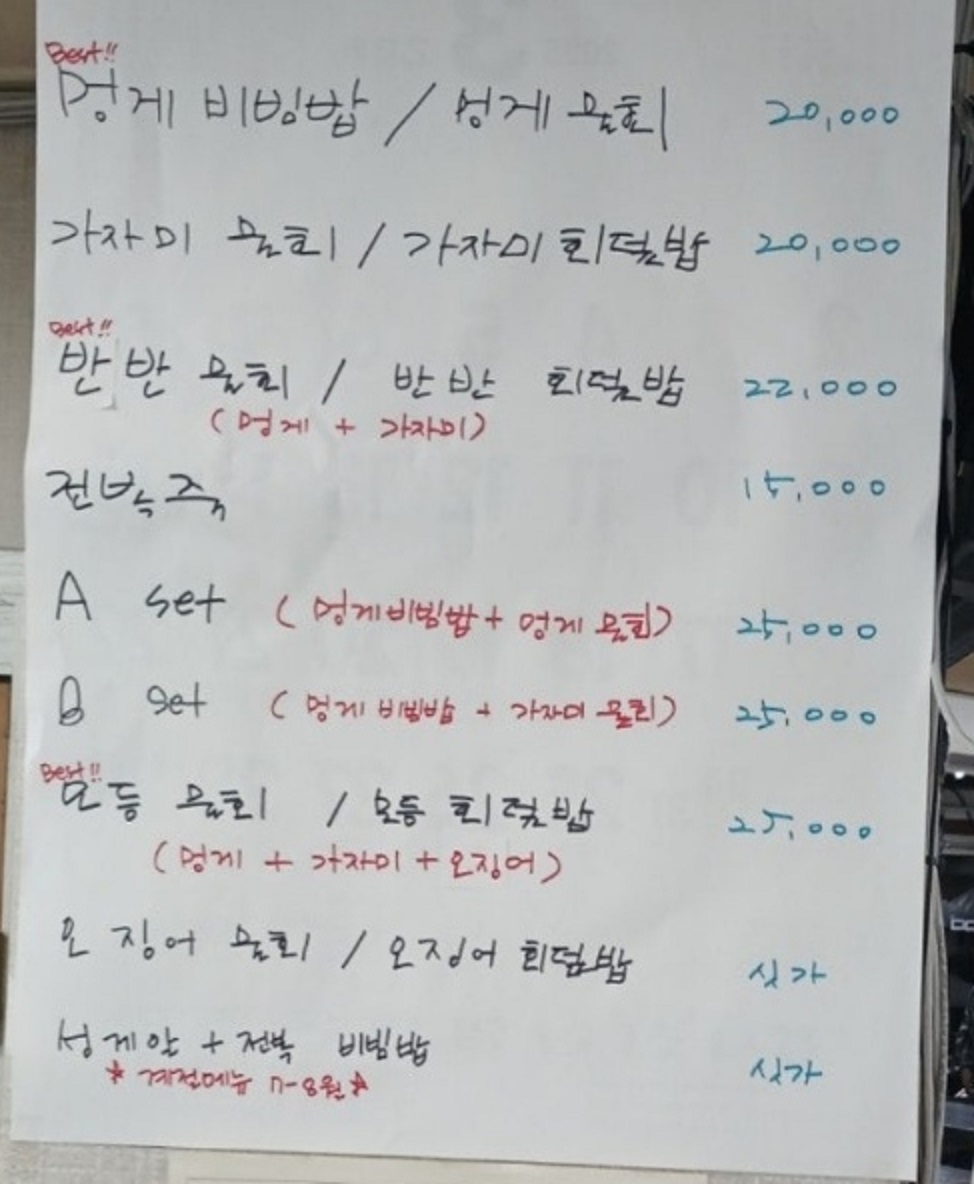 Best!!
멍게 비빔밥 / 멍게 물회 20,000
가자미 물회 / 가자미 회덮밥 20,000
Best!!
반반 물회 / 반반 회덮밥 22,000
(멍게 + 가자미)
전복죽 15,000
A set (멍게비빔밥 + 멍게 물회) 25,000
B set (멍게 비빔밥 + 가자미 물회) 25,000
Best!!
모듬 물회 / 모듬 회덮밥 25,000
(멍게 + 가자미 + 오징어)
오징어 물회 / 오징어 회덮밥 싯가
성게알 + 전복 비빔밥 싯가
* 계절메뉴 7-8월 *